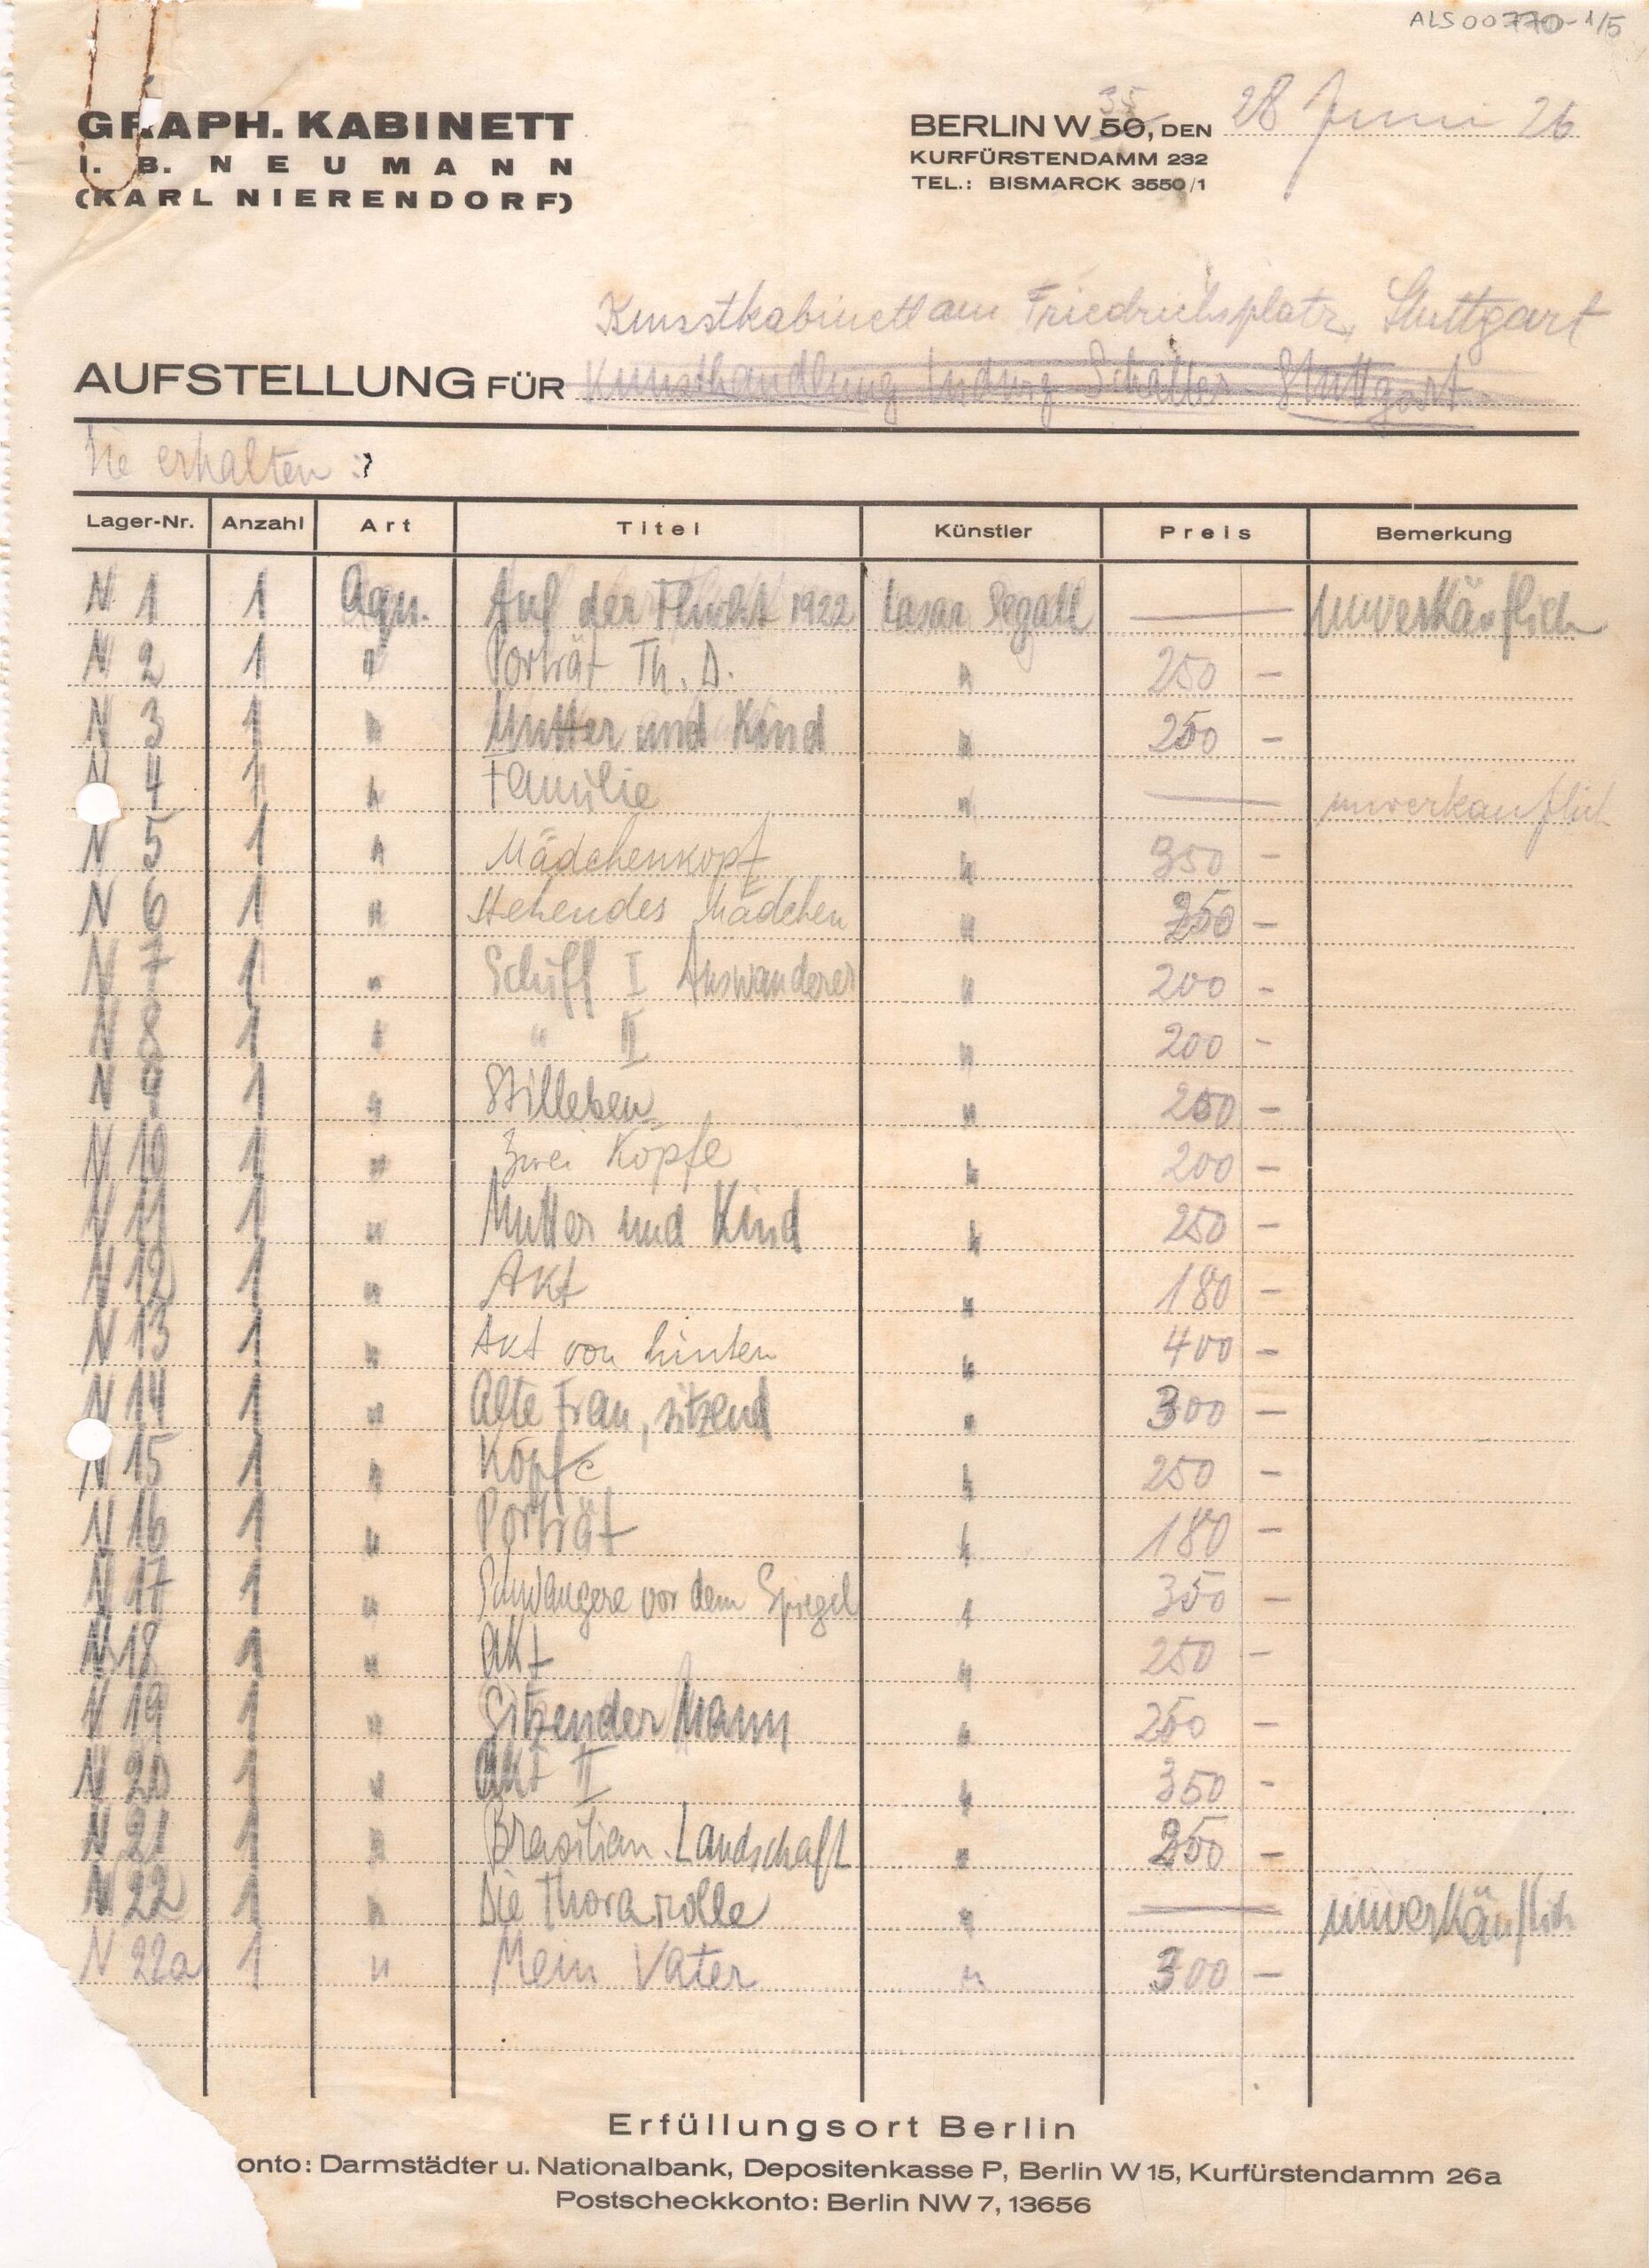 ALS 00770-1/5
GRAPH. KABINETT
I. B. NEUMANN
(KARL NIERENDORF)
35
BERLIN W 50, DEN 28 Juni 26
KURFÜRSTENDAMM 232
TEL.: BISMARCK 3550/1
Kunstkabinett am Friedrichsplatz, Stuttgart
AUFSTELLUNG FÜR Kunsthandlung Ludwig Schaller Stuttgart
Sie erhalten :
Lager-Nr. Anzahl Art Titel Künstler Preis Bemerkung
N 1 1 Aqu. Auf der Flucht 1922 Lasar Segall — unverkäuflich
N 2 1 " Porträt Th. D. " 250 –
N 3 1 " Mutter und Kind " 250 –
N 4 1 " Familie " — unverkäuflich
N 5 1 " Mädchenkopf " 350 –
N 6 1 " Stehendes Mädchen " 350 –
N 7 1 " Schiff I Auswanderer " 200 –
N 8 1 " " II " 200 –
N 9 1 " Stilleben " 250 –
N 10 1 " Zwei Köpfe " 200 –
N 11 1 " Mutter und Kind " 250 –
N 12 1 " Akt " 180 –
N 13 1 " Akt von hinten " 400 –
N 14 1 " Alte Frau, sitzend " 300 –
N 15 1 " Köpfe " 250 –
N 16 1 " Porträt " 180 –
N 17 1 " Schwangere vor dem Spiegel " 350 –
N 18 1 " Akt " 250 –
N 19 1 " Sitzender Mann " 250 –
N 20 1 " Akt II " 350 –
N 21 1 " Brasilian. Landschaft " 250 –
N 22 1 " Die Thorarolle " — unverkäuflich
N 22a 1 " Mein Vater " 300 –
Erfüllungsort Berlin
onto: Darmstädter u. Nationalbank, Depositenkasse P, Berlin W 15, Kurfürstendamm 26a
Postscheckkonto: Berlin NW 7, 13656